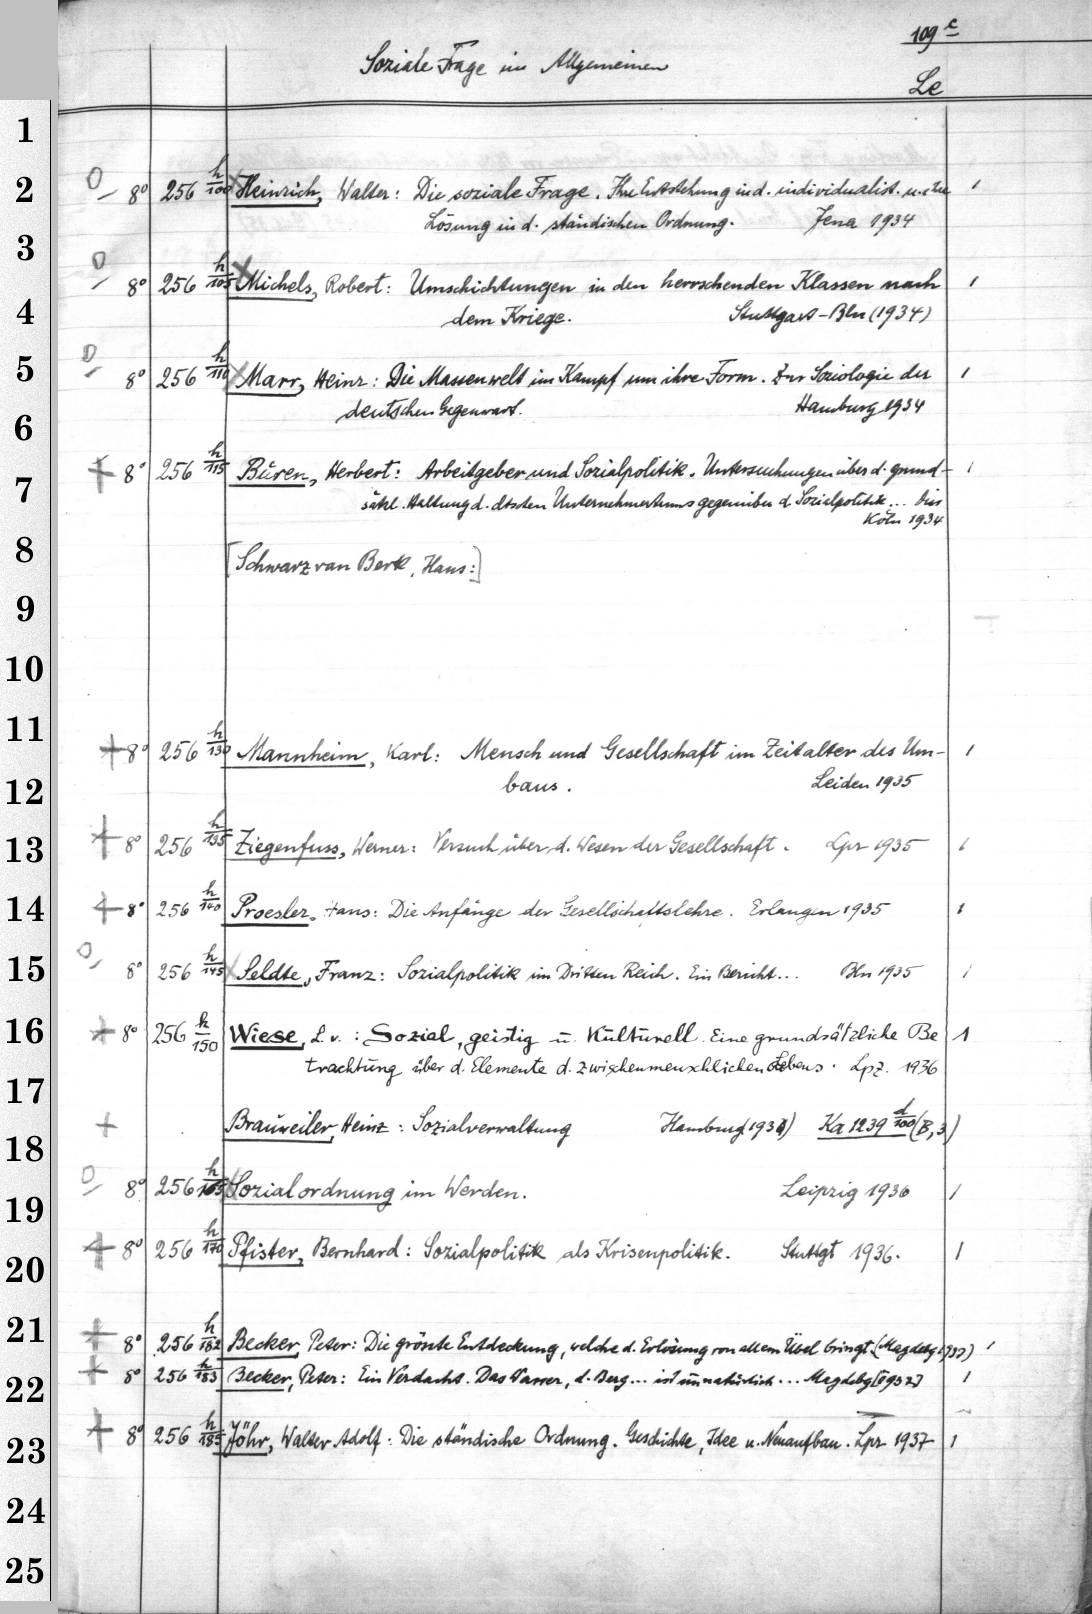 109 c
Soziale Frage im Allgemeinen
Le
1
2
O 8° 256 h/100 Heinrich, Walter: Die soziale Frage. Ihre Entstehung in d. individualist. u. ihre 1
Lösung in d. ständischen Ordnung. Jena 1934
3
O 8° 256 h/105 Michels, Robert: Umschichtungen in den herrschenden Klassen nach 1
4
dem Kriege. Stuttgart-Bln (1934)
5
O 8° 256 h/110 Marr, Heinz: Die Massenwelt im Kampf um ihre Form. Zur Soziologie der 1
deutschen Gegenwart. Hamburg 1934
6
+ 8° 256 h/115 Büren, Herbert: Arbeitgeber und Sozialpolitik. Untersuchungen über d. grund- 1
7
sätzl. Haltung d. dtschen Unternehmertums gegenüber d. Sozialpolitik... Diss
Köln 1934
8
[Schwarz van Berk, Hans:]
9
10
11
+ 8° 256 h/130 Mannheim, Karl: Mensch und Gesellschaft im Zeitalter des Um- 1
12
baus. Leiden 1935
13
+ 8° 256 h/135 Ziegenfuss, Werner: Versuch über d. Wesen der Gesellschaft. Lpz 1935 1
14
+ 8° 256 h/140 Proesler, Hans: Die Anfänge der Gesellschaftslehre. Erlangen 1935 1
15
O 8° 256 h/145 Seldte, Franz: Sozialpolitik im Dritten Reich. Ein Bericht... Bln 1935 1
16
+ 8° 256 h/150 Wiese, L. v.: Sozial, geistig u. Kulturell. Eine grundsätzliche Be 1
trachtung über d. Elemente d. zwischenmenschlichen Lebens. Lpz. 1936
17
+ Brauweiler, Heinz: Sozialverwaltung Hamburg Ka 1239 d/100 (B,3)
18
O 8° 256 h/165 Sozialordnung im Werden. Leipzig 1936 1
19
+ 8° 256 h/170 Pfister, Bernhard: Sozialpolitik als Krisenpolitik. Stuttgt 1936. 1
20
21
+ 8° 256 h/182 Becker, Peter: Die grösste Entdeckung, welche d. Erlösung von allem Übel bringt. (Magdebg 1932) 1
+ 8° 256 h/183 Becker, Peter: Ein Verdacht. Das Wasser, d. Berg... ist unnatürlich... Magdebg [1932] 1
22
+ 8° 256 h/185 Jöhr, Walter Adolf: Die ständische Ordnung. Geschichte, Idee u. Neuaufbau. Lpz 1937 1
23
24
25